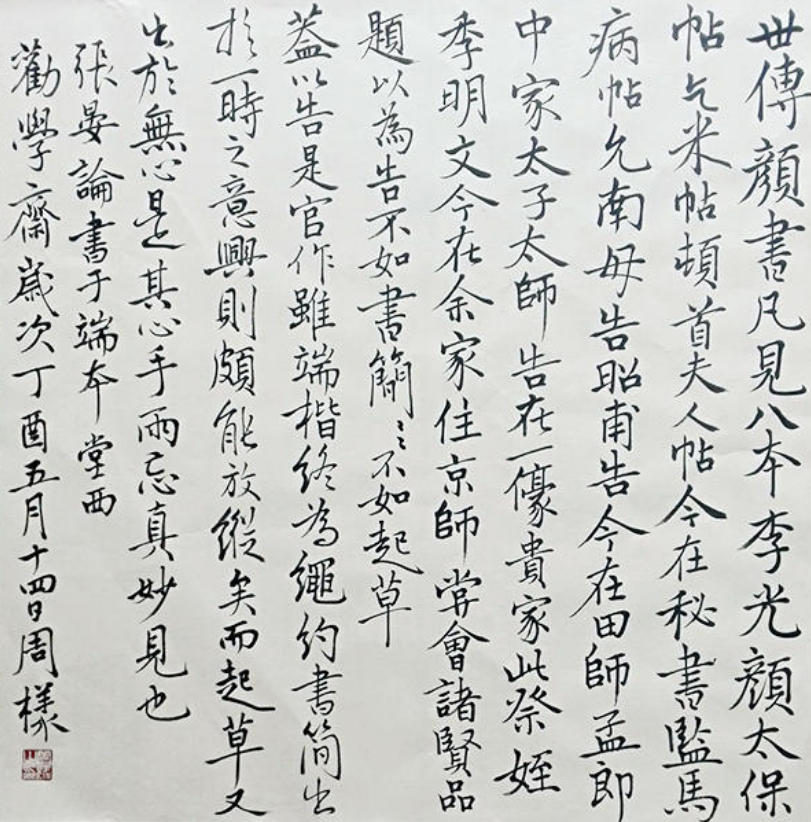 世傳顏書凡見八本李光顏太保
帖乞米帖頓首夫人帖今在秘書監馬
病帖允南母告昭甫告今在田師孟郎
中家太子太師告在一豪貴家此祭姪
季明文今在余家住京師嘗會諸賢品
題以為告不如書簡〻不如起草
蓋以告是官作雖端楷終為繩約書簡出
於一時之意興則頗能放縱矣而起草又
出於無心是其心手兩忘真妙見也
張晏論書于端本堂西
勸學齋歲次丁酉五月十四日周樣